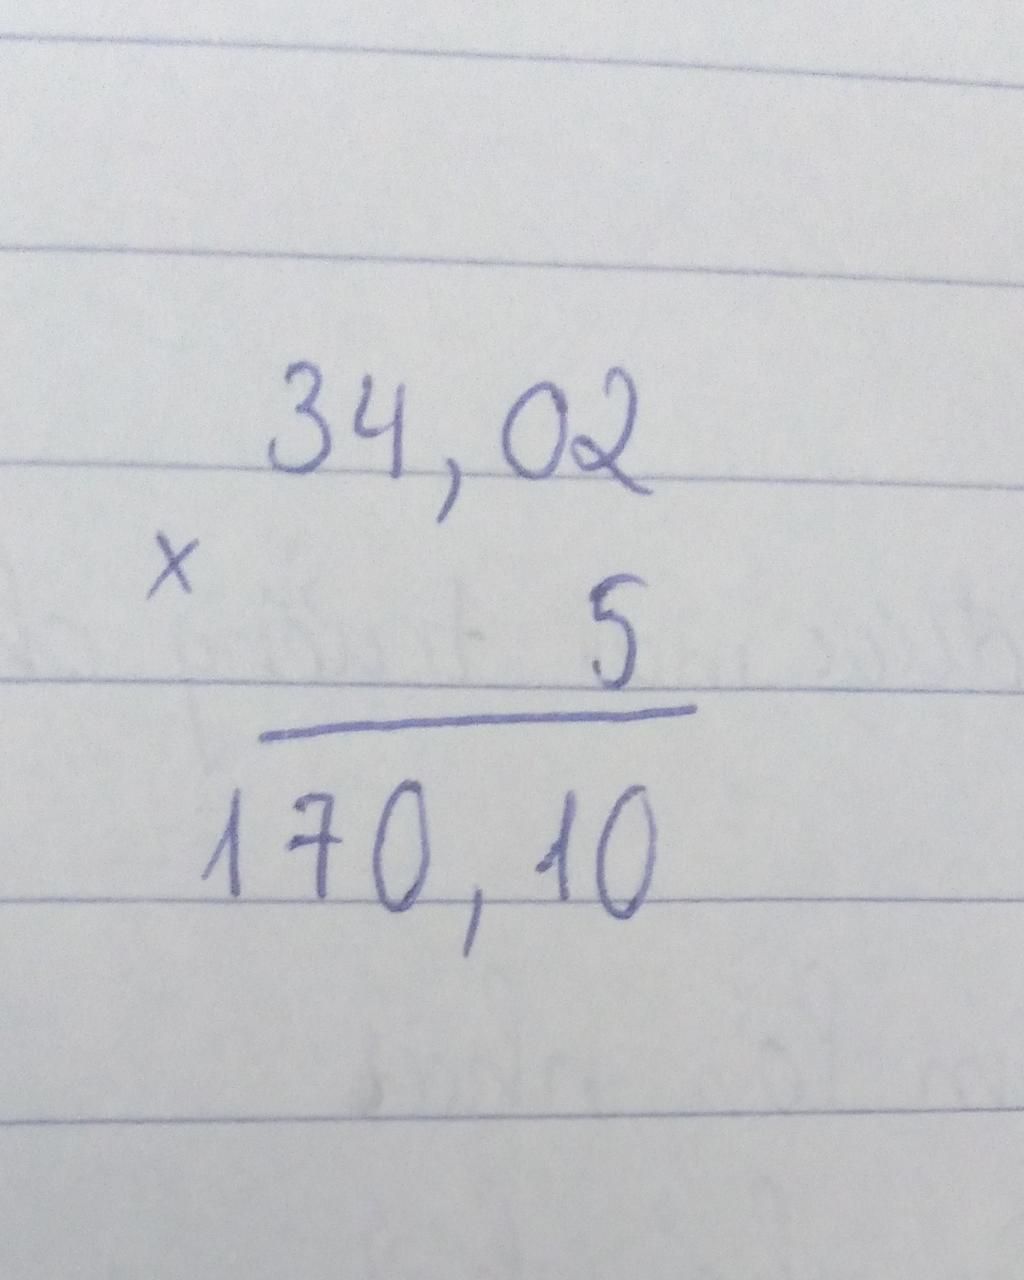 34,02
x
5
170,10